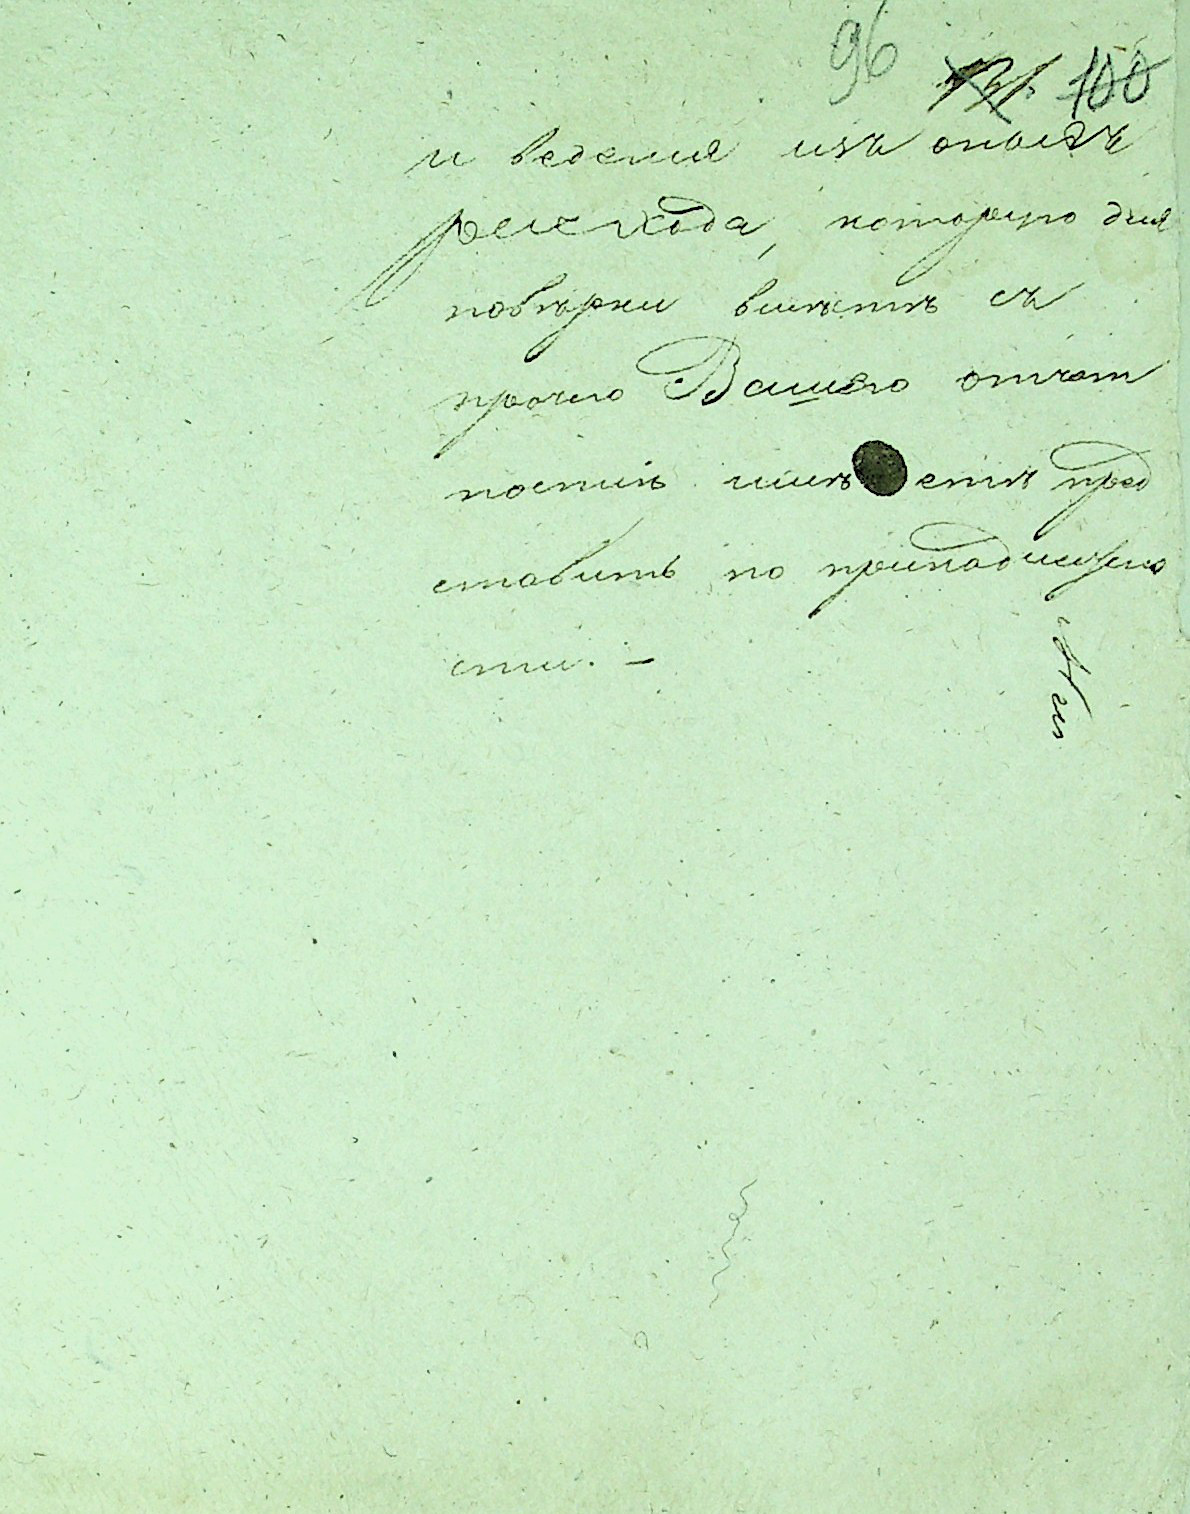 96 100
и ведения изъ оныхъ
расхода, которую для
повѣрки вмѣстѣ съ
прочею Вашею отчет
ностію имѣетъ пред
ставить по принадлежно
сти. —